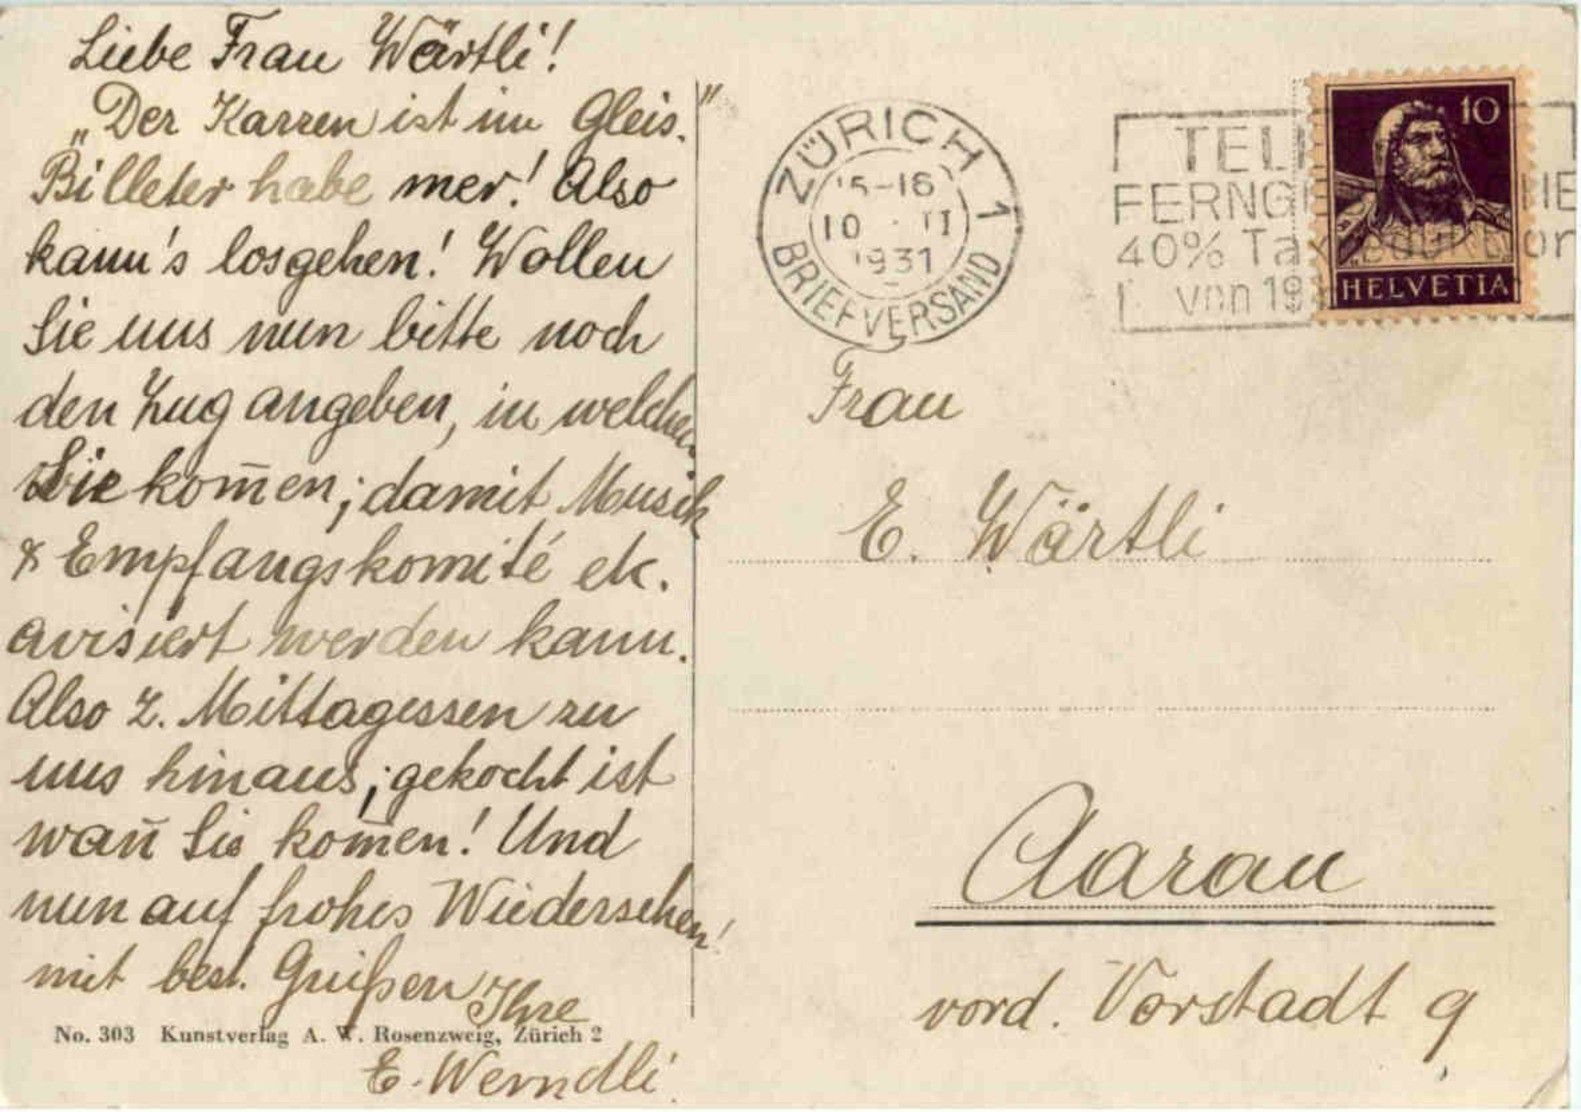 Liebe Frau Wärtli!
„Der Karren ist im Gleis."
Billeter habe mer! Also
kann's losgehen! Wollen
Sie uns nun bitte noch
den Zug angeben, in welchem
Sie kom̄en; damit Musik
& Empfangskomité etc.
avisiert werden kann.
Also z. Mittagessen zu
uns hinaus; gekocht ist
wan̄ Sie kom̄en! Und
nun auf frohes Wiedersehen!
mit best. Grüßen Ihre
E. Werndli
No. 303 Kunstverlag A. W. Rosenzweig, Zürich 2
ZÜRICH 1
15-16
10 · II
1931
BRIEFVERSAND
40%
von
10
HELVETIA
Frau
E. Wärtli
Aarau
vord. Vorstadt 9